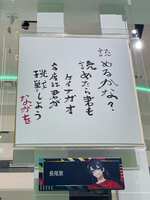 読めるかな？
読めたら君も
ケイアガオ
今度は君が
挑戦しよう
ながを
長尾景